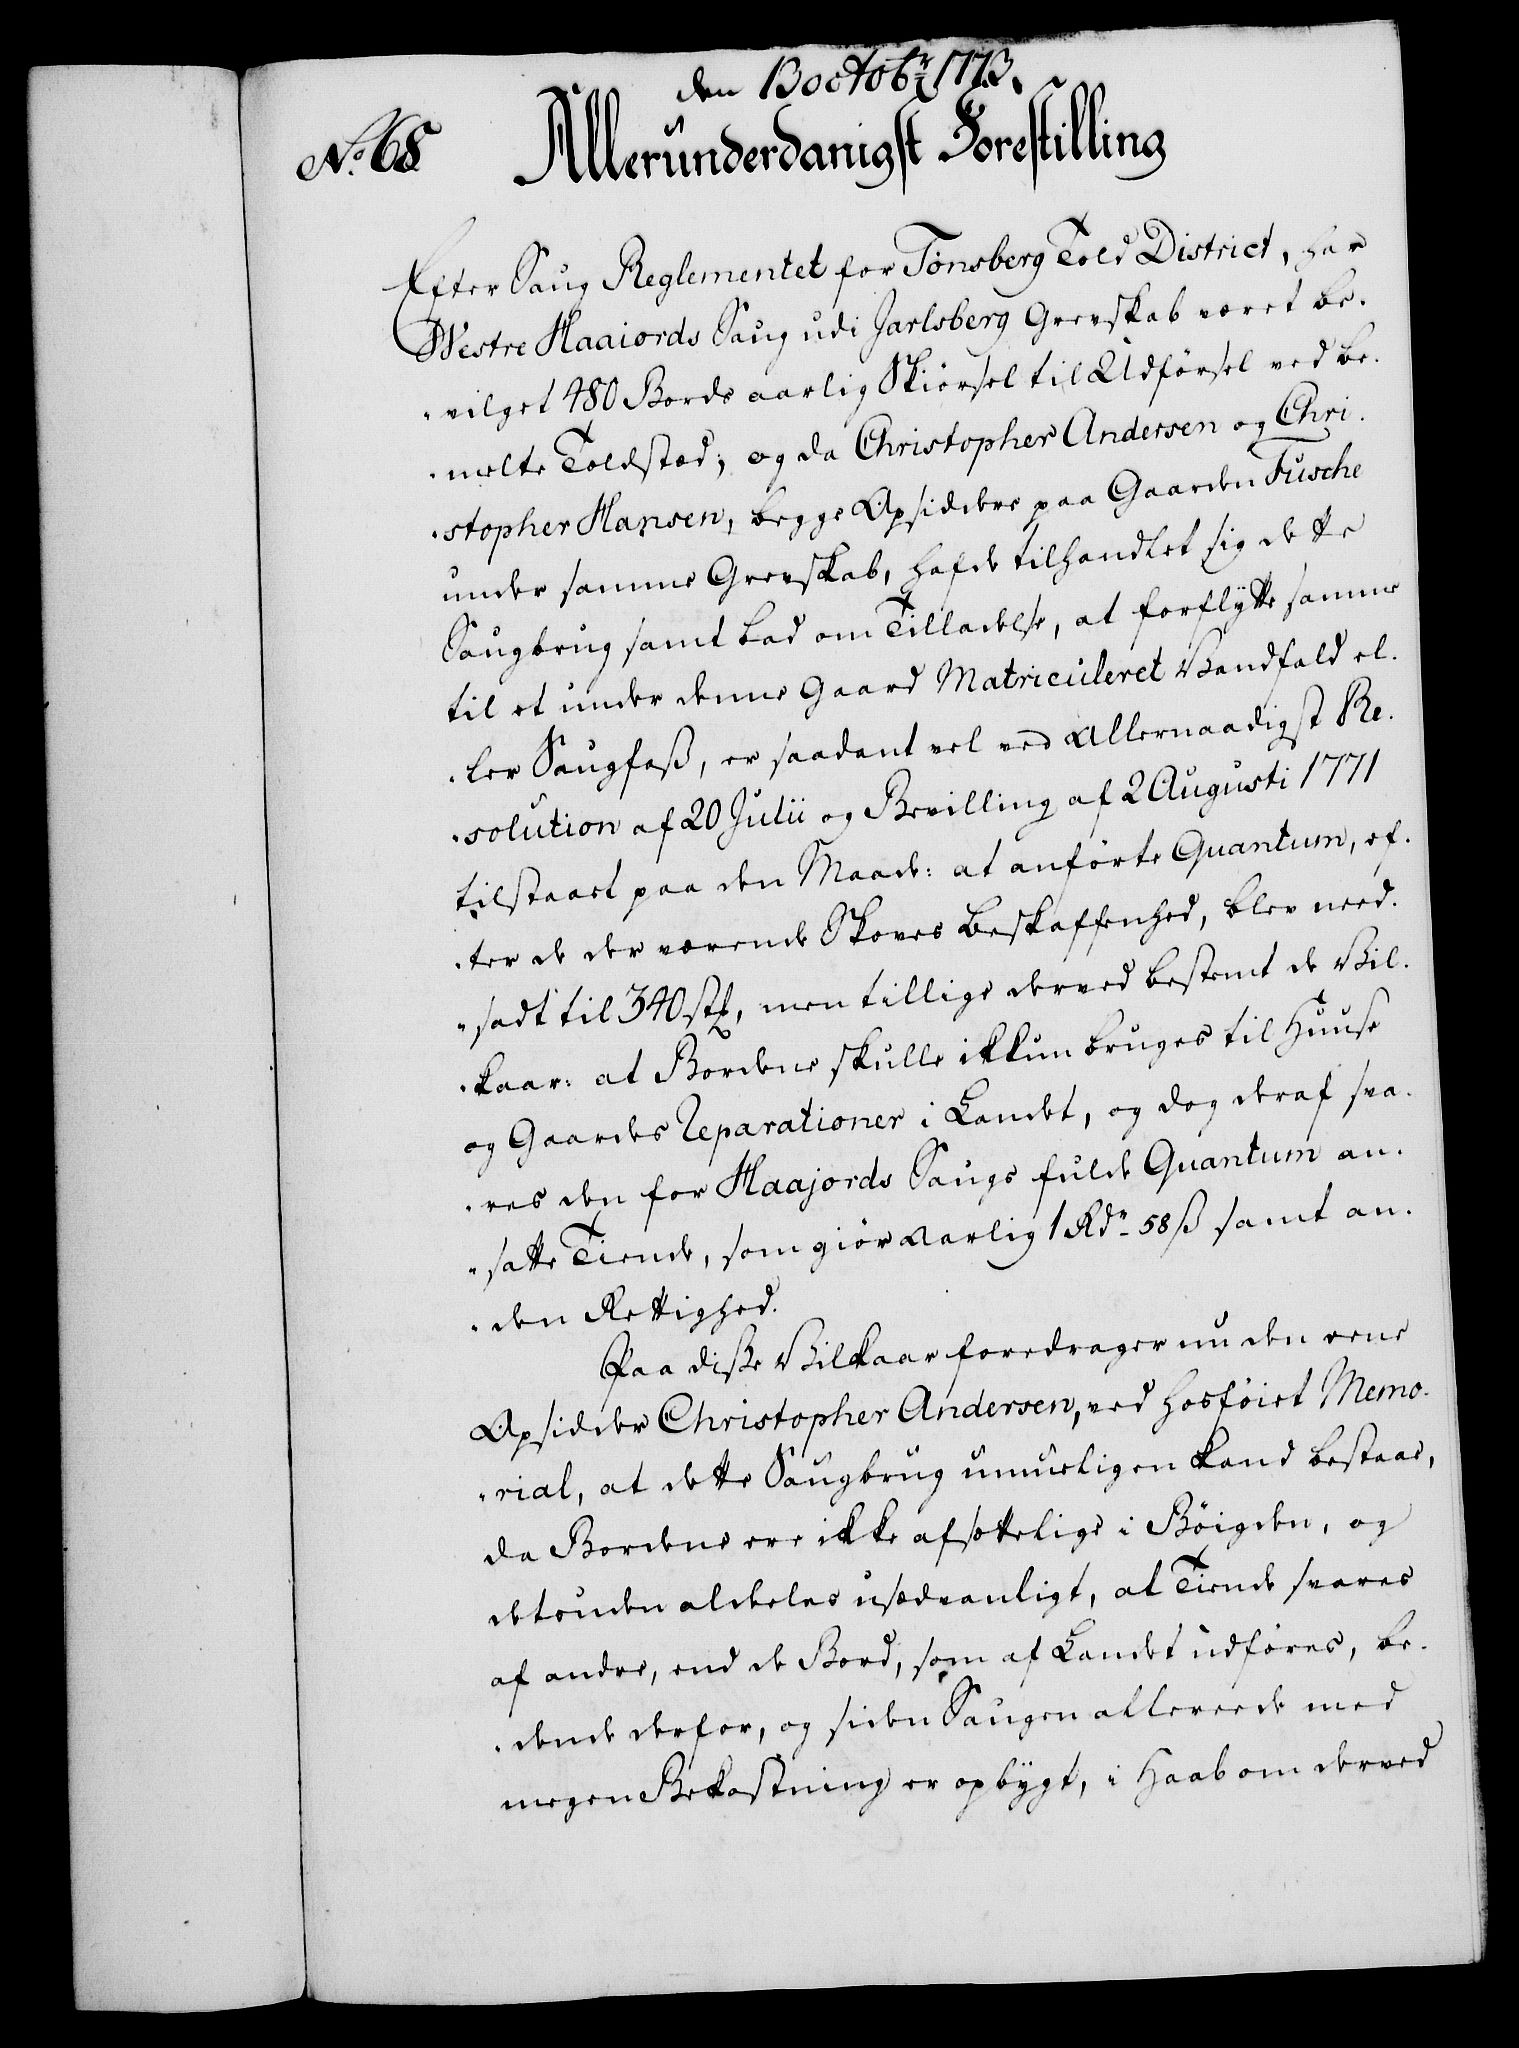 den 13 octobr 1773.
No. 68 Allerunderdanigst Forestilling
Efter Saug Reglementet for Tønsberg Told District, har
Westre Haaiords Saug udi Jarlsberg Grevskab været be-
-vilget 480 Bords aarlig Skiørsel til Udførsel ved be-
-melte Toldsted; og da Christopher Andersen og Chri-
-stopher Hansen, begge Opsiddere paa Gaarden Fusche
under samme Grevskab, hafde tilhandlet sig dette
Saugbrug samt bad om Tilladelse, at forflytte samme
til et under denne Gaard Matriculeret Vandfald el-
-ler Saugfoss, er saadant vel ved Allernaadigst Re-
-solution af 20 Julii og Bevilling af 2 Augusti 1771
tilstaaet paa den Maade: at anførte Quantum, ef-
-ter de der værende Skoves Beskaffenhed, blev need-
-sadt til 340 stk, men tillige derved bestemt de Vil-
-kaar: at Bordene skulle ikkun bruges til Huuse
og Gaardes Reparationer i Landet, og dog deraf sva-
-res den for Haajords Saugs fulde Quantum an-
-satte Tiende, som giør aarlig 1 Rdr 58 ß samt an-
-den Rettighed.
Paa disse Vilkaar foredrager nu den eene
Opsidder Christopher Andersen, ved hosføiet Memo-
-rial, at dette Saugbrug umueligen kand bestaae,
da Bordene ere ikke afsættelige i Bøigden, og
detsuden aldeles usædvanligt, at Tiende svares
af andre, end de Bord, som af Landet udføres, be-
-dende derfor, og siden Saugen allereede med
megen Bekostning er opbygt, i Haab om derved